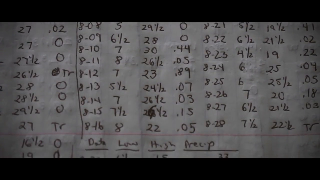 27 .02 8-08 5 29½ 0 8-21 5½ 19½ .41
27 0 8-09 6½ 28 0 8-22 .02
27½ 0 8-10 7 30 .44 8-23 4½ 19 .22
26½ Tr 8-11 8 26½ .05 8-24 6 25 .04
28 0 8-12 7 23 .89 8-25 6 25½ .05
28½ 0 8-13 5½ 24½ .07 8-26 7 20 .18
29½ 0 8-14 7 26½ .03 8-27 6½ 21½ .03
27 Tr 8-15 7½ .15 8-28 7½ 22½ Tr
8-16 8 22 .05
16½ 0 Date Low High Precip
19 0